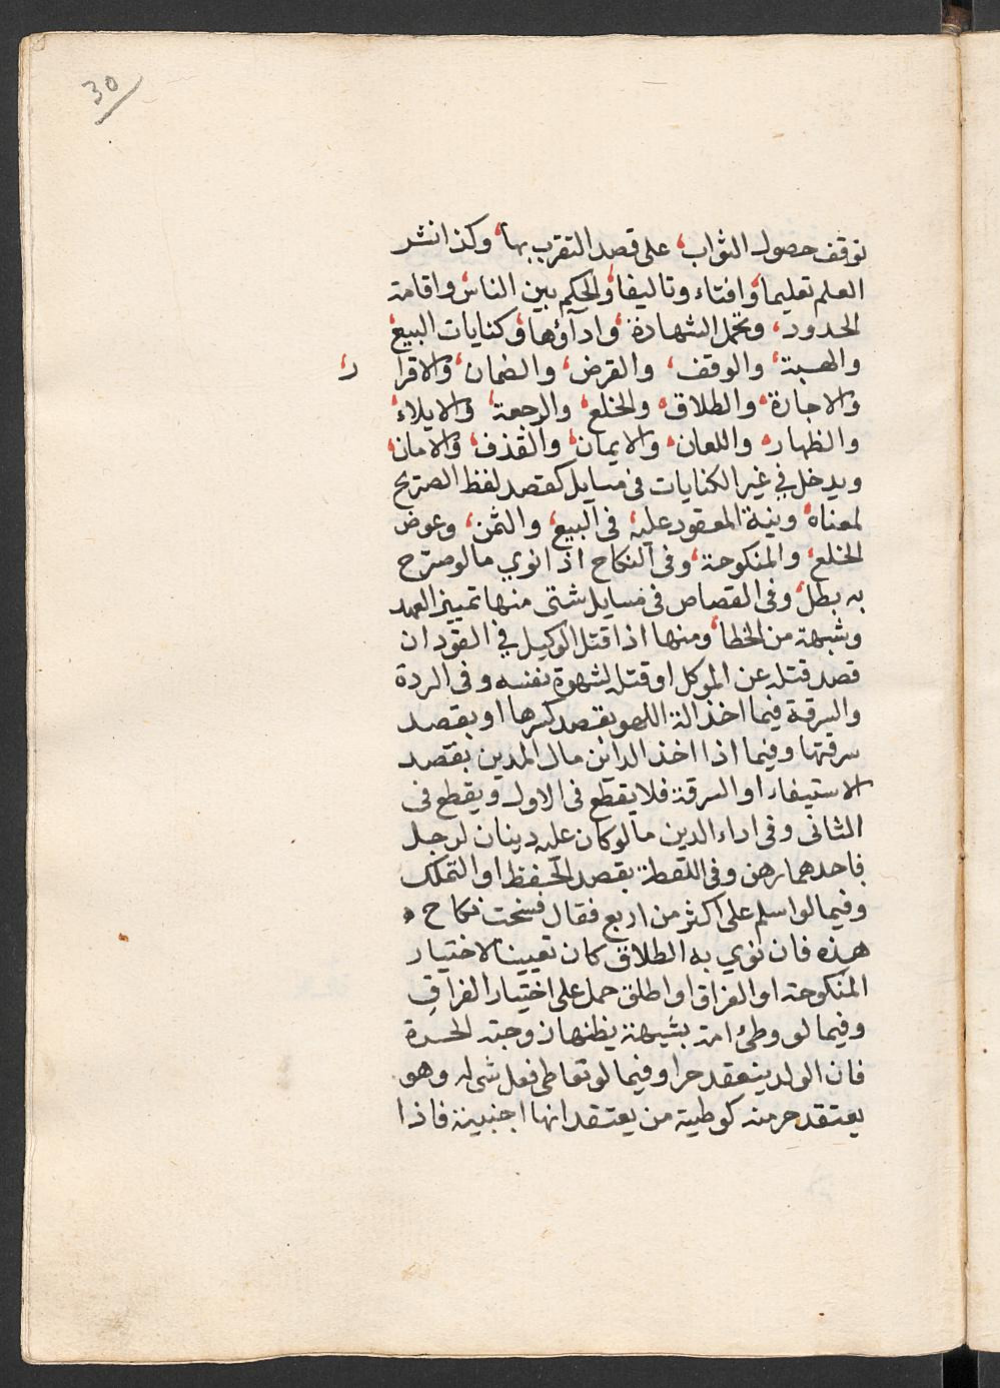 30
توقف حصول الثواب، على قصد التقرب بها، وكذا نشر
العلم تعليما، وافتاء وتاليفا، والحكم بين الناس، واقامة
الحدود، وتحمل الشهادة، واداؤها، وكنايات البيع،
والهبة، والوقف، والقرض، والضمان، والاقرار،
والاجارة، والطلاق، والخلع، والرجعة، والايلاء،
والظهار، واللعان، والايمان، والقذف، والامان،
ويدخل في غير الكنايات فى مسايل كقصد لفظ الصريح
لمعناه، ونية المعقود عليه، فى البيع، والثمن، وعوض
الخلع، والمنكوحة، وفى النكاح اذا نوي ما لو صرّح
به بطل، وفى القصاص فى مسايل شتى منها تمييز العمد
وشبهة من الخطا، ومنها اذا قتل الوكيل في القود ان
قصد قتله عن الموكل او قتله لشهوة نفسه وفى الردة
والسرقة فيما اخذ الة اللهو بقصد كسرها او بقصد
سرقتها وفيما اذا اخذ الدائن مال المدين بقصد
الاستيفاء او السرقة فلا يقطع فى الاول ويقطع فى
الثانى وفى اداء الدين ما لو كان عليه دينان لرجل
فاحدهما رهن وفى اللقطة بقصد الحفظ او التملك
وفيما لو اسلم على اكثر من اربع فقال فسخت نكاح
هذه فان نوي به الطلاق كان تعيينا لاختيار
المنكوحة او الفراق او اطلق حمل على اختيار الفراق
وفيما لو وطئ امة بشبهة يظنها زوجته الحرة
فان الولد ينعقد حرا وفيما لو تعاطى فعل شى له وهو
يعتقد حرمته كوطية من يعتقد انها اجنبية فاذا